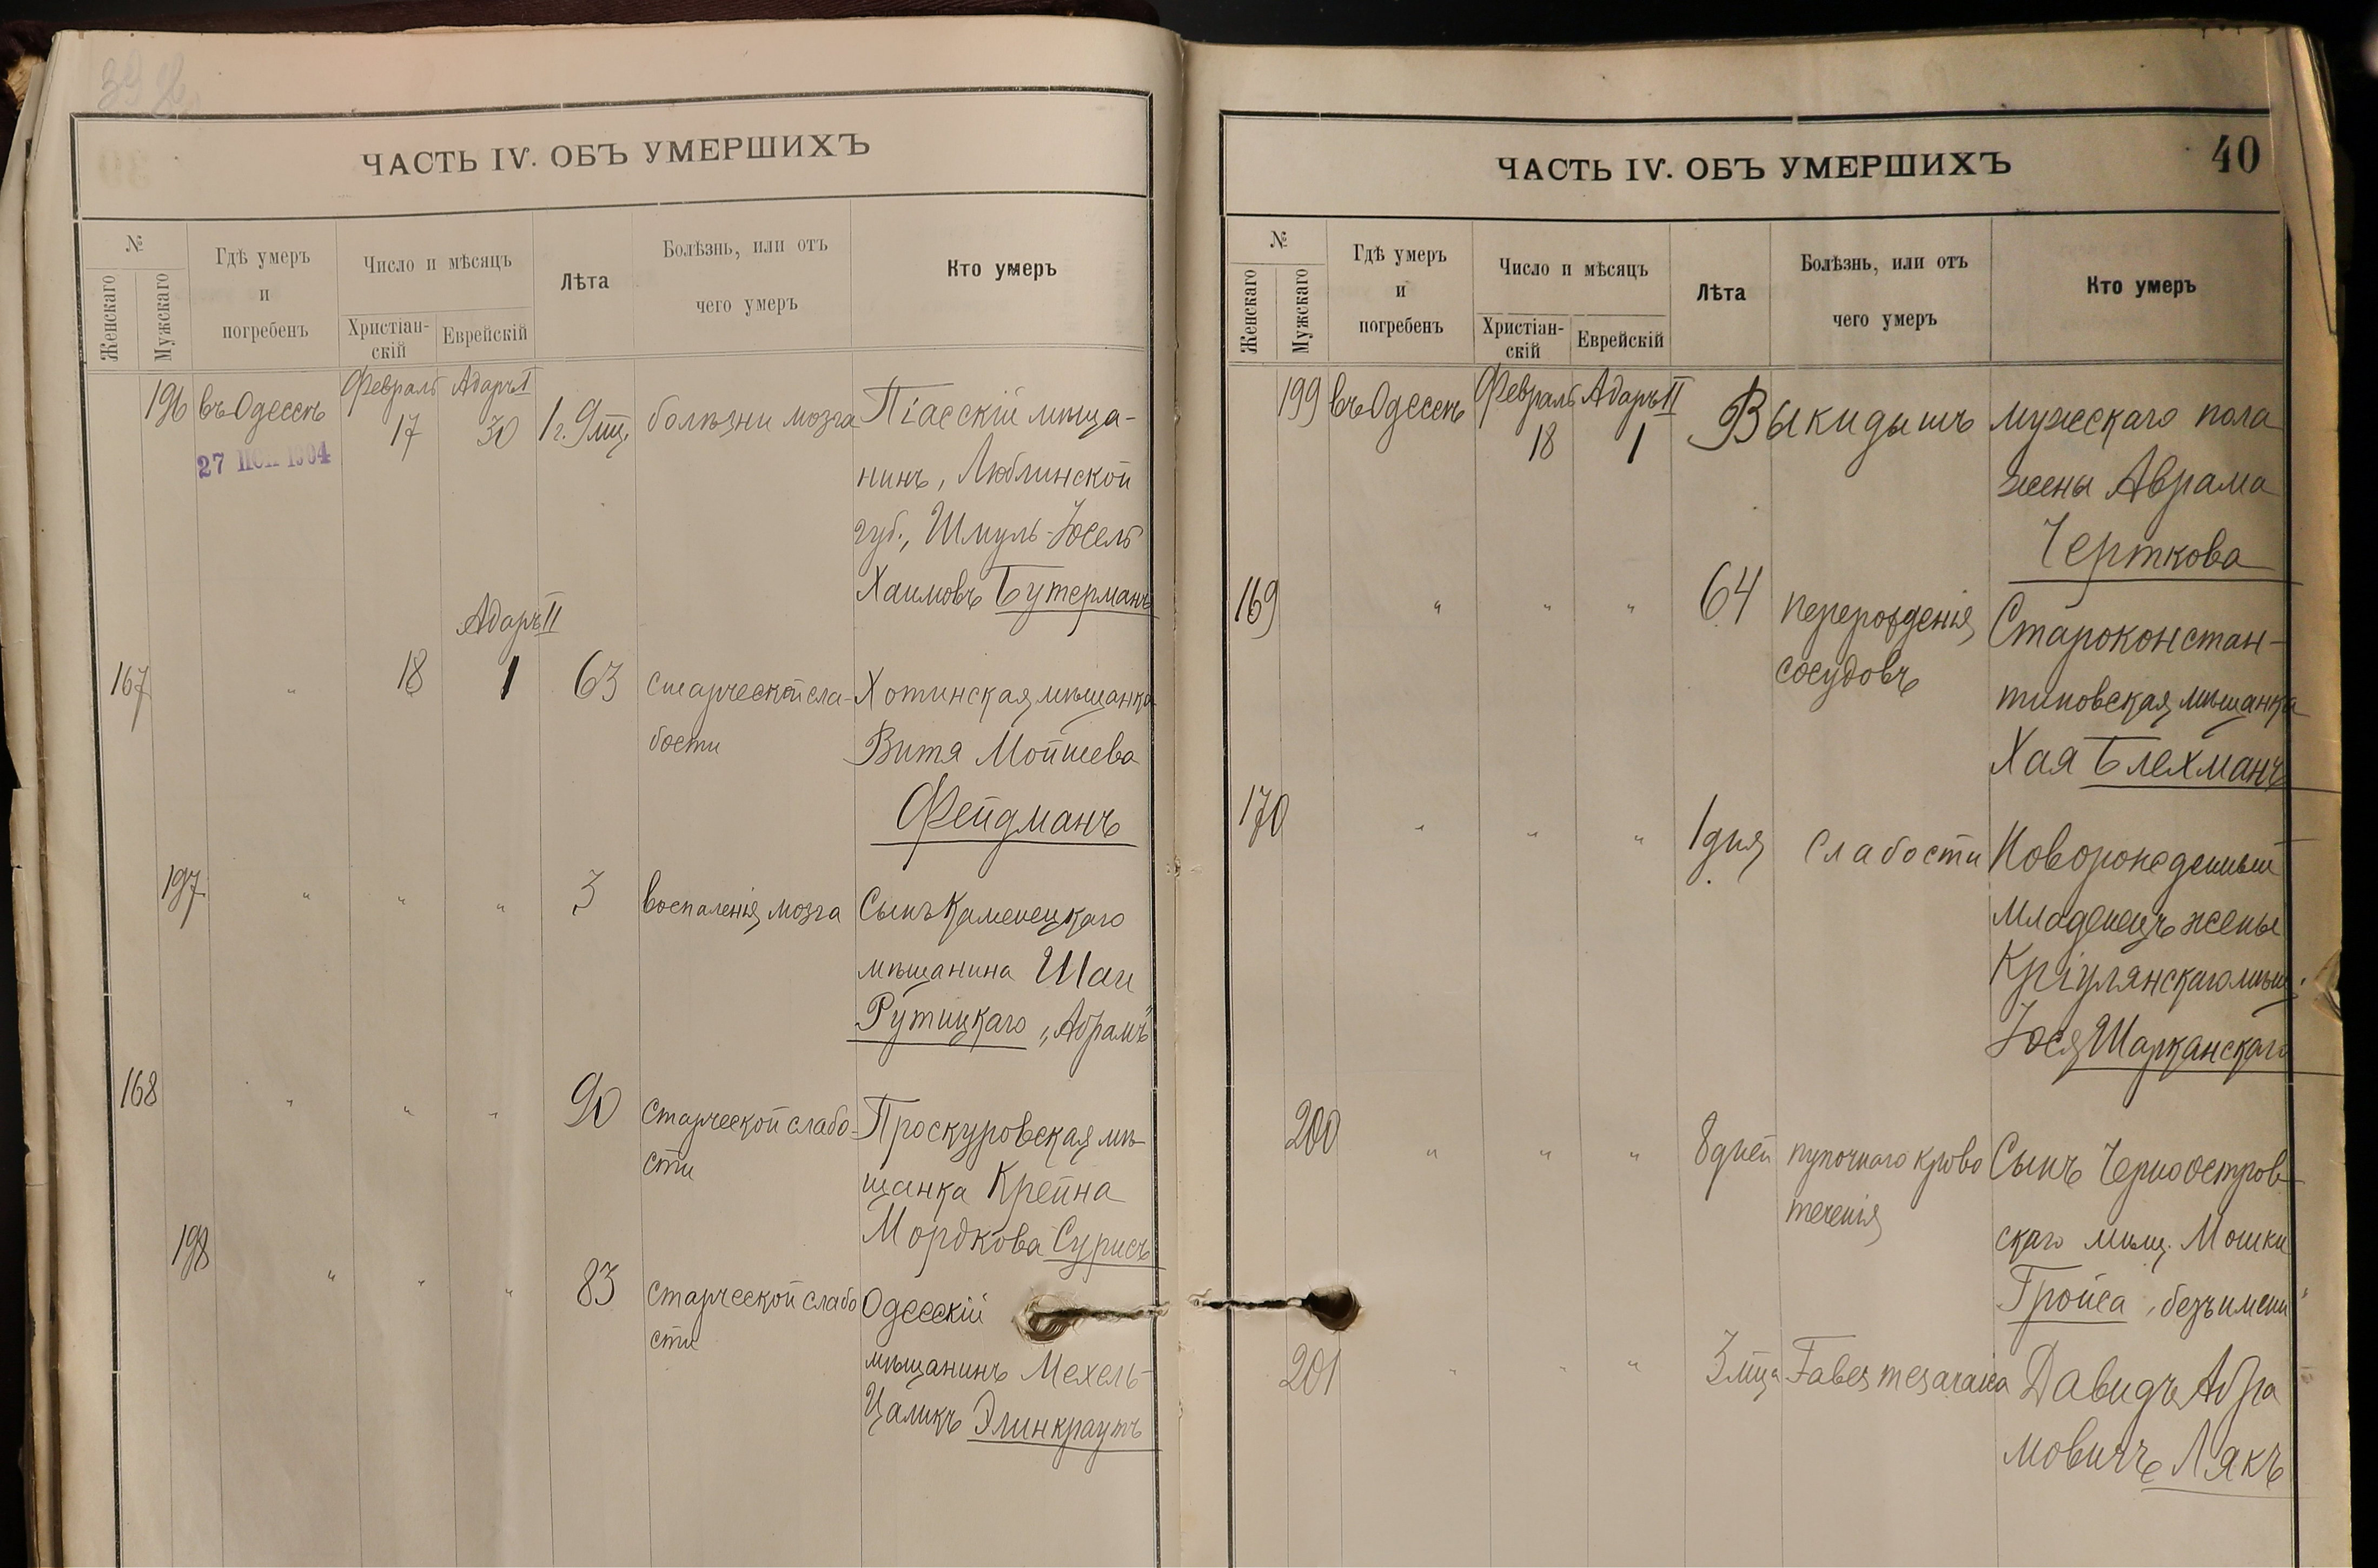 ЧАСТЬ IV. ОБЪ УМЕРШИХЪ
№
Женскаго
Мужскаго
Гдѣ умеръ
и
погребенъ
Число и мѣсяцъ
Христіан-
скій
Еврейскій
Лѣта
Болѣзнь, или отъ
чего умеръ
Кто умеръ
196 въ Одессѣ Февраль 17 Адаръ I 30 1 г. 9 мц. болѣзни мозга Піасскій мѣща-
27
1904
нинъ, Люблинской
губ., Шмуль-Іосель
Хаимовъ Бутерманъ
Адаръ II
167 " 18 1 63 старческой сла- Хотинская мѣщанка
бости Витя Мойшева
Фейдманъ
197 " " " 3 воспаленія мозга Сынъ Каменецкаго
мѣщанина Шаи
Рутицкаго „Абрамъ"
168 " " " 90 старческой слабо- Проскуровская мѣ-
сти щанка Крейна
Мордкова Сурисъ
198 " " " 83 старческой слабо Одесскій
сти мѣщанинъ Мехель-
Цаликъ Элинкраутъ
ЧАСТЬ IV. ОБЪ УМЕРШИХЪ
40
№
Женскаго
Мужскаго
Гдѣ умеръ
и
погребенъ
Число и мѣсяцъ
Христіан-
скій
Еврейскій
Лѣта
Болѣзнь, или отъ
чего умеръ
Кто умеръ
199 въ Одессѣ Февраль 18 Адаръ II 1 Выкидышъ мужескаго пола
жены Аврама
Черткова
169 " " " 64 перерожденія Староконстан-
сосудовъ тиновская мѣщанка
Хая Блехманъ
170 " " " 1 дня слабости Новорожденный
младенецъ жены
Кріулянскаго мѣщ.
Іося Шарканскаго
200 " " " 8 дней пупочнаго крово Сынъ Черноостров-
теченія скаго мѣщ. Мошки
Гройса „безъ имени"
201 " " " 3 мца Tabes mesaraica Давидъ Абра
мовичъ Лякъ